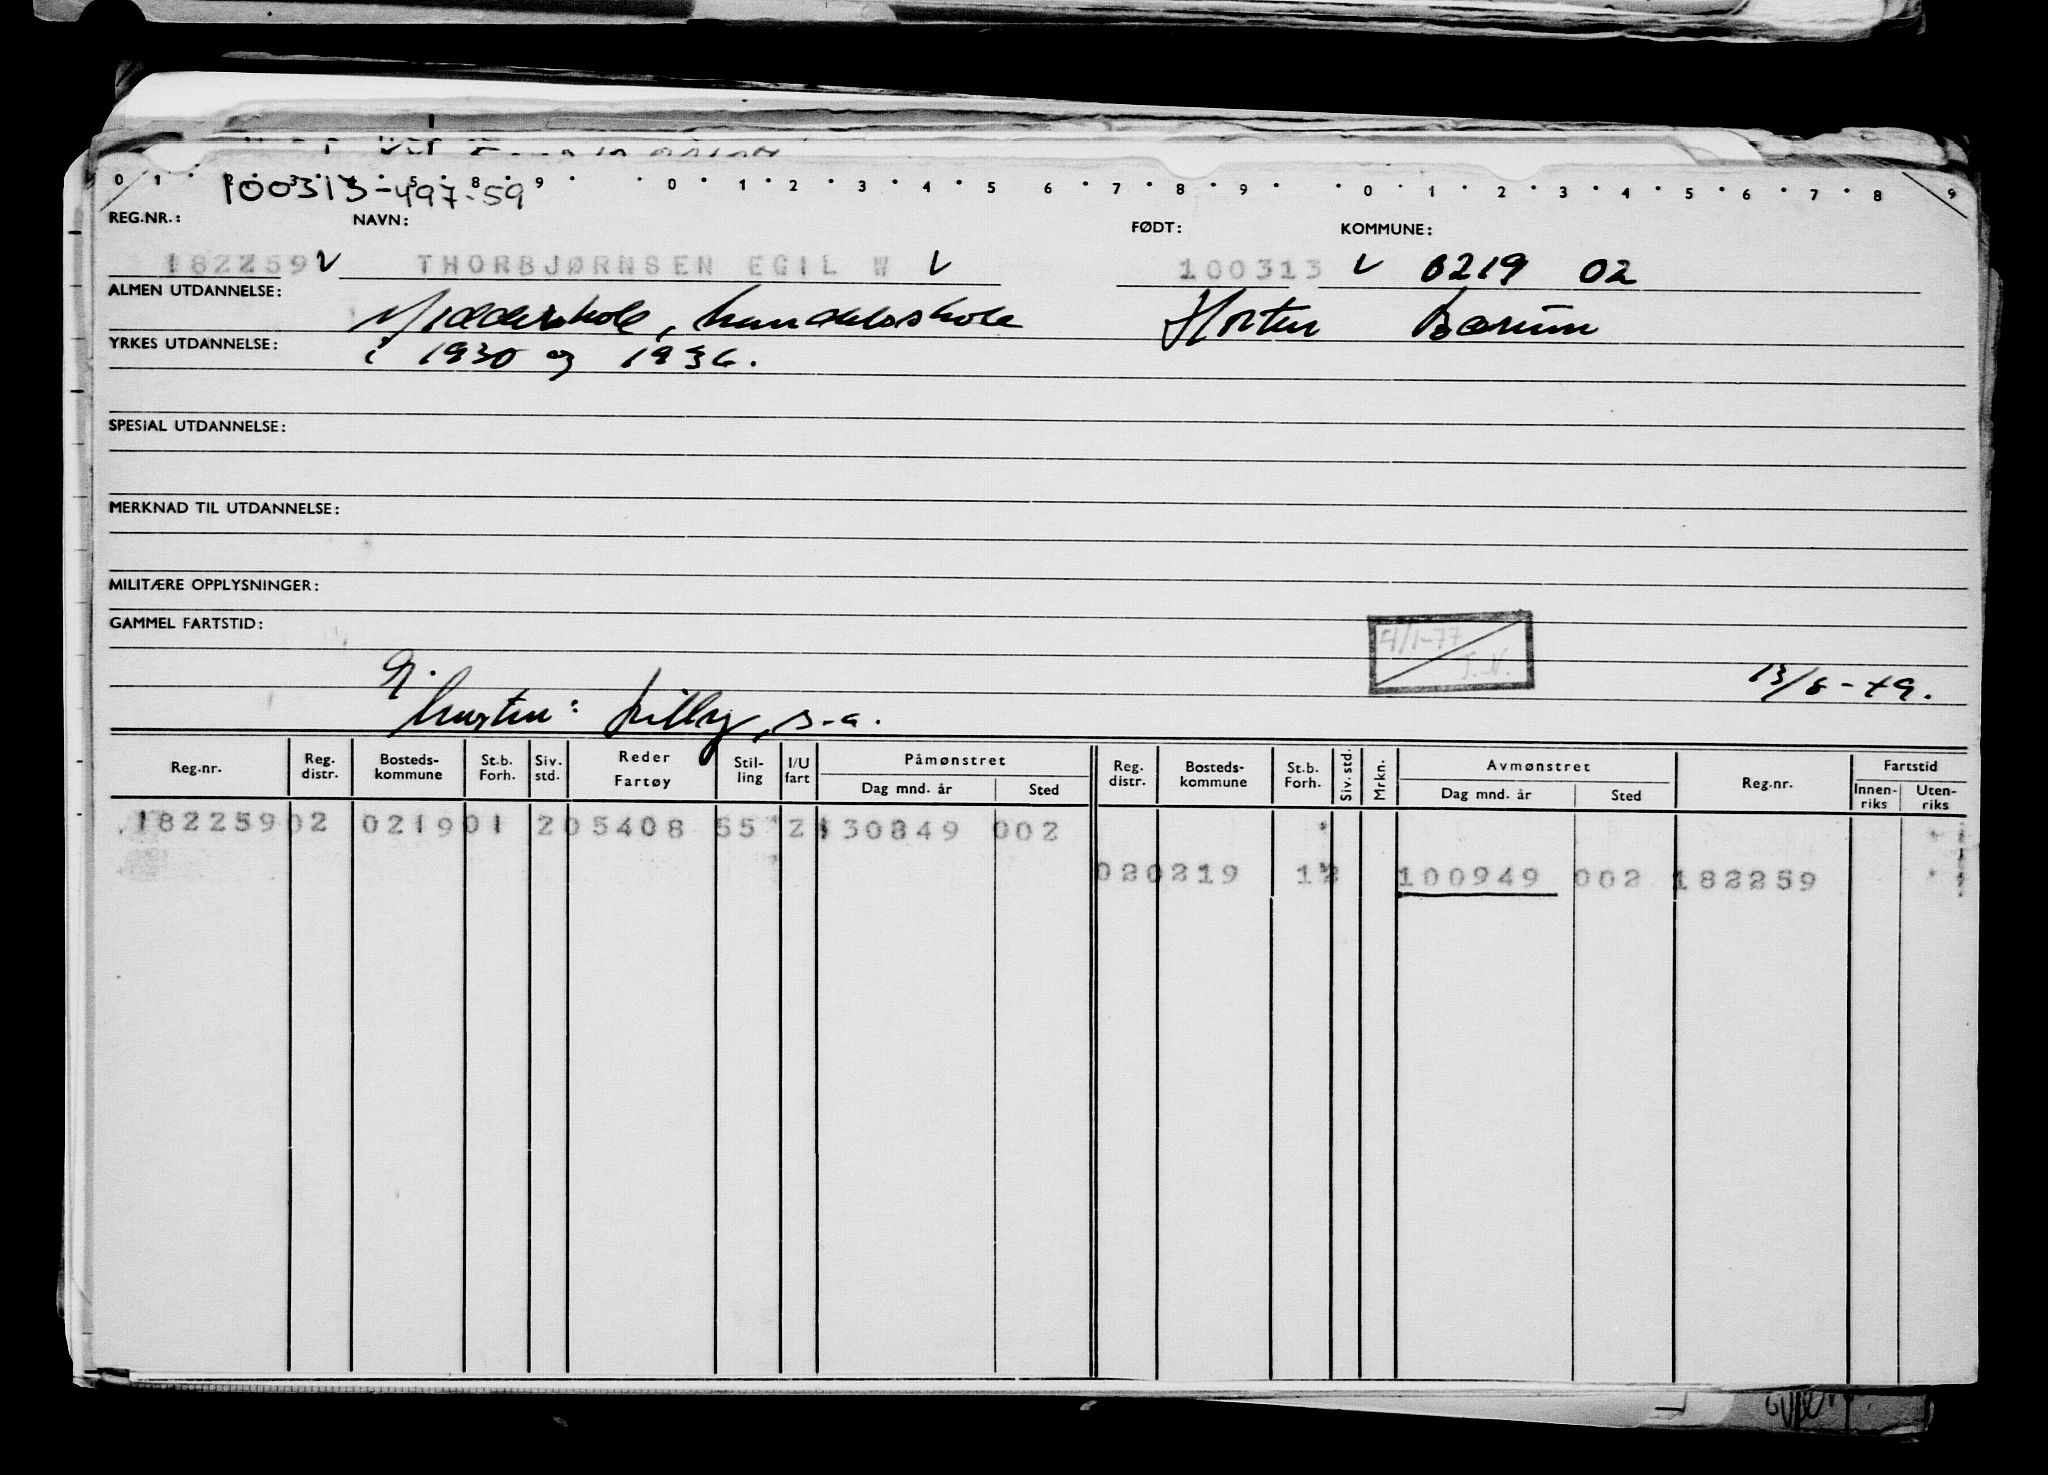 0 1 8 9 0 1 2 3 4 5 6 7 8 9 0 1 2 3 4 5 6 7 8 9
100313-497-59
REG.NR.: NAVN: FØDT: KOMMUNE:
182259 THORBJØRNSEN EGIL W 100313 0219 02
ALMEN UTDANNELSE: Middelskole, handelsskole Horten Bærum
YRKES UTDANNELSE: i 1930 og 1936.
SPESIAL UTDANNELSE:
MERKNAD TIL UTDANNELSE:
MILITÆRE OPPLYSNINGER:
GAMMEL FARTSTID:
4/1-77
J.N.
G. 13/8-49.
hustru: Lilly, s.a.
Reg.nr. Reg. distr. Bosteds-kommune St.b. Forh. Siv. std. Reder Fartøy Stil-ling I/U fart Påmønstret Dag mnd. år Sted Reg. distr. Bosteds-kommune St.b. Forh. Siv. std. Mrkn. Avmønstret Dag mnd. år Sted Reg.nr. Fartstid Innen-riks Uten-riks
182259 02 0219 01 2 05408 55 2 130849 002
02 0219 12 100949 002 182259